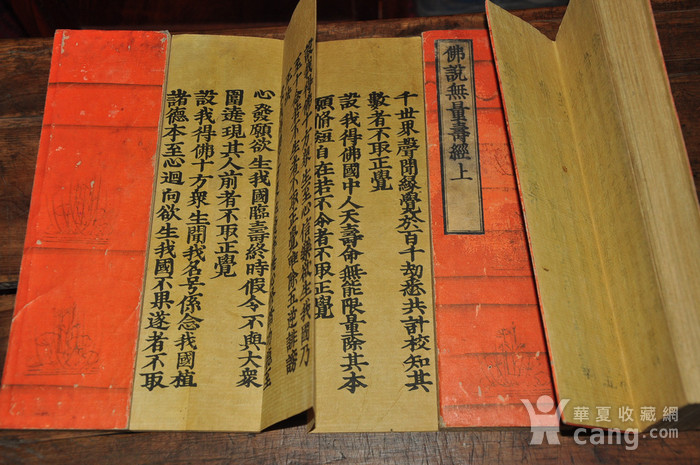 佛說無量壽經上
千世界聲聞緣覺於百千劫悉共計校知其
數者不取正覺
設我得佛國中人天壽命無能限量除其本
願脩短自在若不令者不取正覺
心發願欲生我國臨壽終時假令不與大衆
圍遶現其人前者不取正覺
設我得佛十方衆生聞我名号係念我國植
諸德本至心迴向欲生我國不果遂者不取
華夏收藏網
cang.com